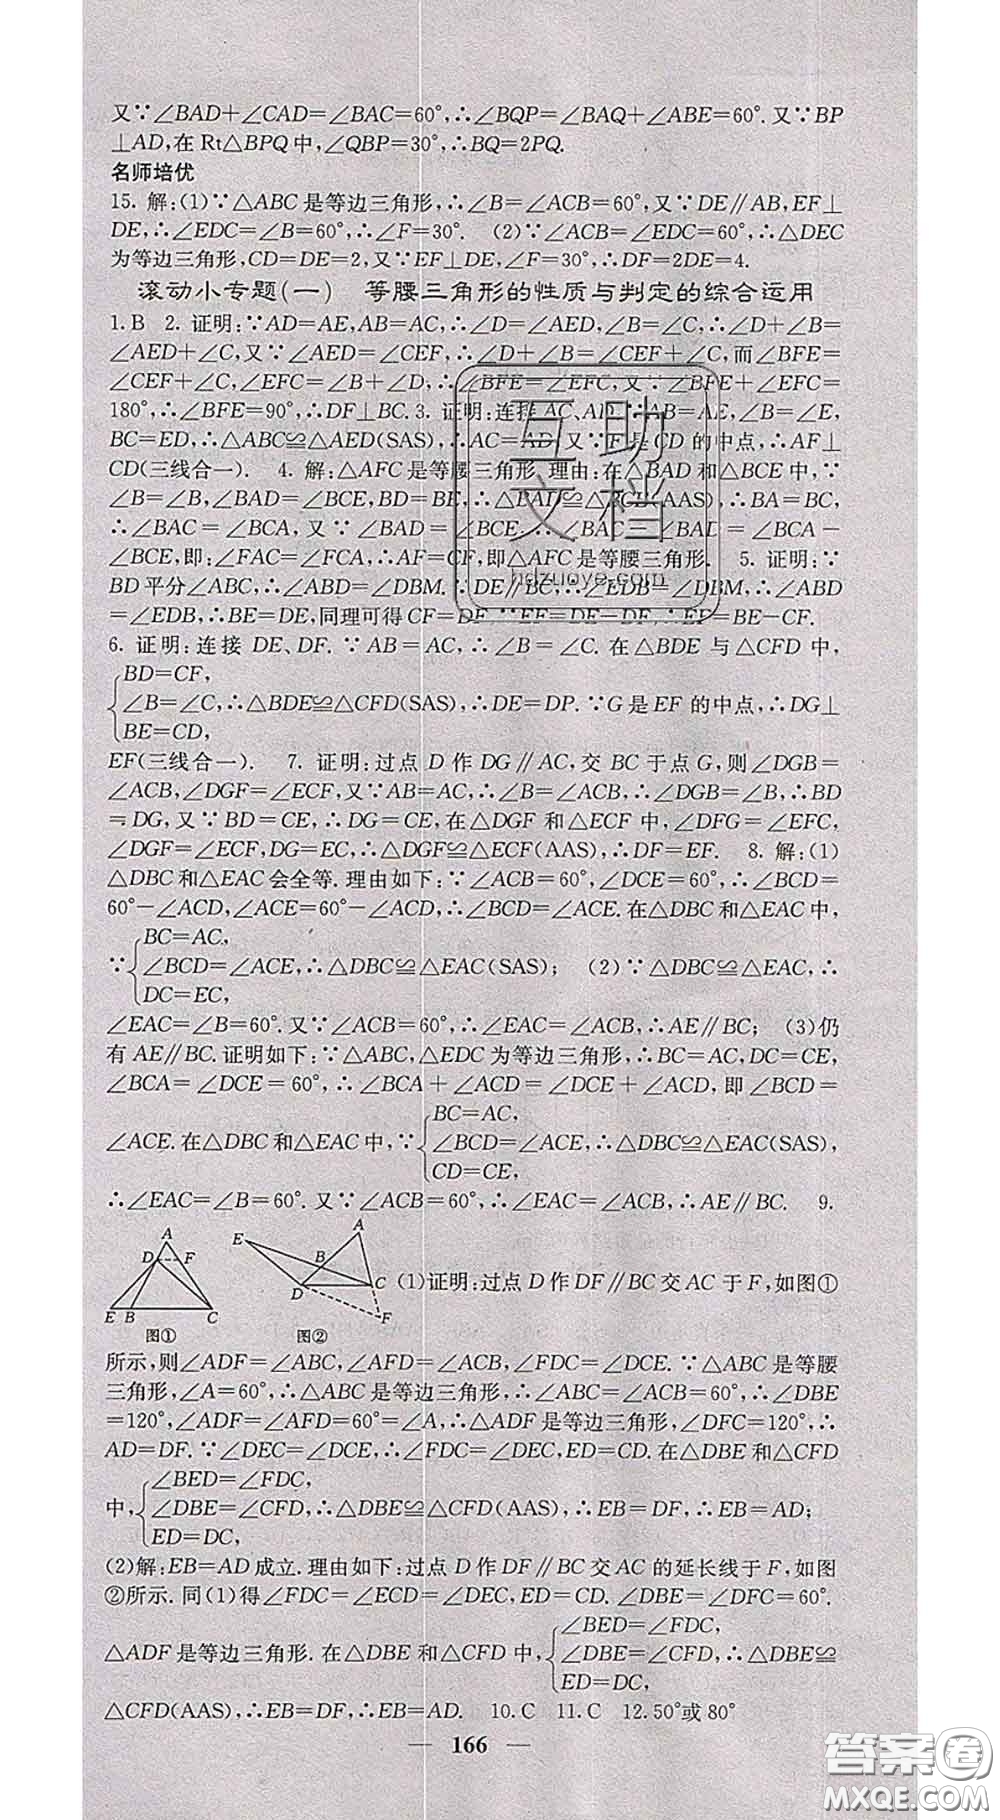 又∵∠BAD+∠CAD=∠BAC=60°,∴∠BQP=∠BAQ+∠ABE=60°.又∵BP
⊥AD,在Rt△BPQ中,∠QBP=30°,∴BQ=2PQ.
名师培优
15. 解:(1)∵△ABC是等边三角形,∴∠B=∠ACB=60°,又∵DE∥AB,EF⊥
DE,∴∠EDC=∠B=60°,∴∠F=30°. (2)∵∠ACB=∠EDC=60°,∴△DEC
为等边三角形,CD=DE=2,又∵EF⊥DE,∠F=30°,∴DF=2DE=4.
滚动小专题(一) 等腰三角形的性质与判定的综合运用
1.B 2. 证明:∵AD=AE,AB=AC,∴∠D=∠AED,∠B=∠C,∴∠D+∠B=
∠AED+∠C,又∵∠AED=∠CEF,∴∠D+∠B=∠CEF+∠C,而∠BFE=
∠CEF+∠C,∠EFC=∠B+∠D,∴∠BFE=∠EFC,又∵∠BFE+∠EFC=
180°,∴∠BFE=90°,∴DF⊥BC. 3. 证明:连接AC、AD.∵AB=AE,∠B=∠E,
BC=ED,∴△ABC≌△AED(SAS),∴AC=AD,又∵F是CD的中点,∴AF⊥
CD(三线合一). 4. 解:△AFC是等腰三角形.理由:在△BAD和△BCE中,∵
∠B=∠B,∠BAD=∠BCE,BD=BE,∴△BAD≌△BCE(AAS),∴BA=BC,
∴∠BAC=∠BCA,又∵∠BAD=∠BCE,∴∠BAC-∠BAD=∠BCA-
∠BCE,即:∠FAC=∠FCA,∴AF=CF,即△AFC是等腰三角形. 5. 证明:∵
BD平分∠ABC,∴∠ABD=∠DBM.∵DE∥BC,∴∠EDB=∠DBM,∴∠ABD
=∠EDB,∴BE=DE,同理可得CF=DF.∵EF=DE-DF,∴EF=BE-CF.
6. 证明:连接DE、DF.∵AB=AC,∴∠B=∠C.在△BDE与△CFD中,
BD=CF,
∠B=∠C,∴△BDE≌△CFD(SAS),∴DE=DP.∵G是EF的中点,∴DG⊥
BE=CD,
EF(三线合一). 7. 证明:过点D作DG∥AC,交BC于点G,则∠DGB=
∠ACB,∠DGF=∠ECF,又∵AB=AC,∴∠B=∠ACB,∴∠DGB=∠B,∴BD
=DG,又∵BD=CE,∴DG=CE,在△DGF和△ECF中,∠DFG=∠EFC,
∠DGF=∠ECF,DG=EC,∴△DGF≌△ECF(AAS),∴DF=EF. 8. 解:(1)
△DBC和△EAC会全等.理由如下:∵∠ACB=60°,∠DCE=60°,∴∠BCD=
60°-∠ACD,∠ACE=60°-∠ACD,∴∠BCD=∠ACE.在△DBC和△EAC中,
BC=AC,
∵ ∠BCD=∠ACE,∴△DBC≌△EAC(SAS); (2)∵△DBC≌△EAC,∴
DC=EC,
∠EAC=∠B=60°.又∵∠ACB=60°,∴∠EAC=∠ACB,∴AE∥BC; (3)仍
有AE∥BC.证明如下:∵△ABC,△EDC为等边三角形,∴BC=AC,DC=CE,
∠BCA=∠DCE=60°,∴∠BCA+∠ACD=∠DCE+∠ACD,即∠BCD=
BC=AC,
∠ACE.在△DBC和△EAC中,∵ ∠BCD=∠ACE,∴△DBC≌△EAC(SAS),
CD=CE,
∴∠EAC=∠B=60°.又∵∠ACB=60°,∴∠EAC=∠ACB,∴AE∥BC. 9.
A
D F
E B C
图①
E
A
B
D
C
F
图②
(1)证明:过点D作DF∥BC交AC于F,如图①
所示,则∠ADF=∠ABC,∠AFD=∠ACB,∠FDC=∠DCE.∵△ABC是等腰
三角形,∠A=60°,∴△ABC是等边三角形,∴∠ABC=∠ACB=60°,∴∠DBE
=120°,∠ADF=∠AFD=60°=∠A,∴△ADF是等边三角形,∠DFC=120°,∴
AD=DF.∵∠DEC=∠DCE,∴∠FDC=∠DEC,ED=CD.在△DBE和△CFD
∠BED=∠FDC,
中, ∠DBE=∠CFD,∴△DBE≌△CFD(AAS),∴EB=DF,∴EB=AD;
ED=DC,
(2)解:EB=AD成立.理由如下:过点D作DF∥BC交AC的延长线于F,如图
②所示.同(1)得∠FDC=∠ECD=∠DEC,ED=CD.∠DBE=∠DFC=60°.
∠BED=∠FDC,
△ADF是等边三角形.在△DBE和△CFD中, ∠DBE=∠CFD,∴△DBE≌
ED=DC,
△CFD(AAS),∴EB=DF,∴EB=AD. 10.C 11.C 12.50°或80°
— 166 —
互助
文档
hdzuoye.com
答案圈
MXQE.COM